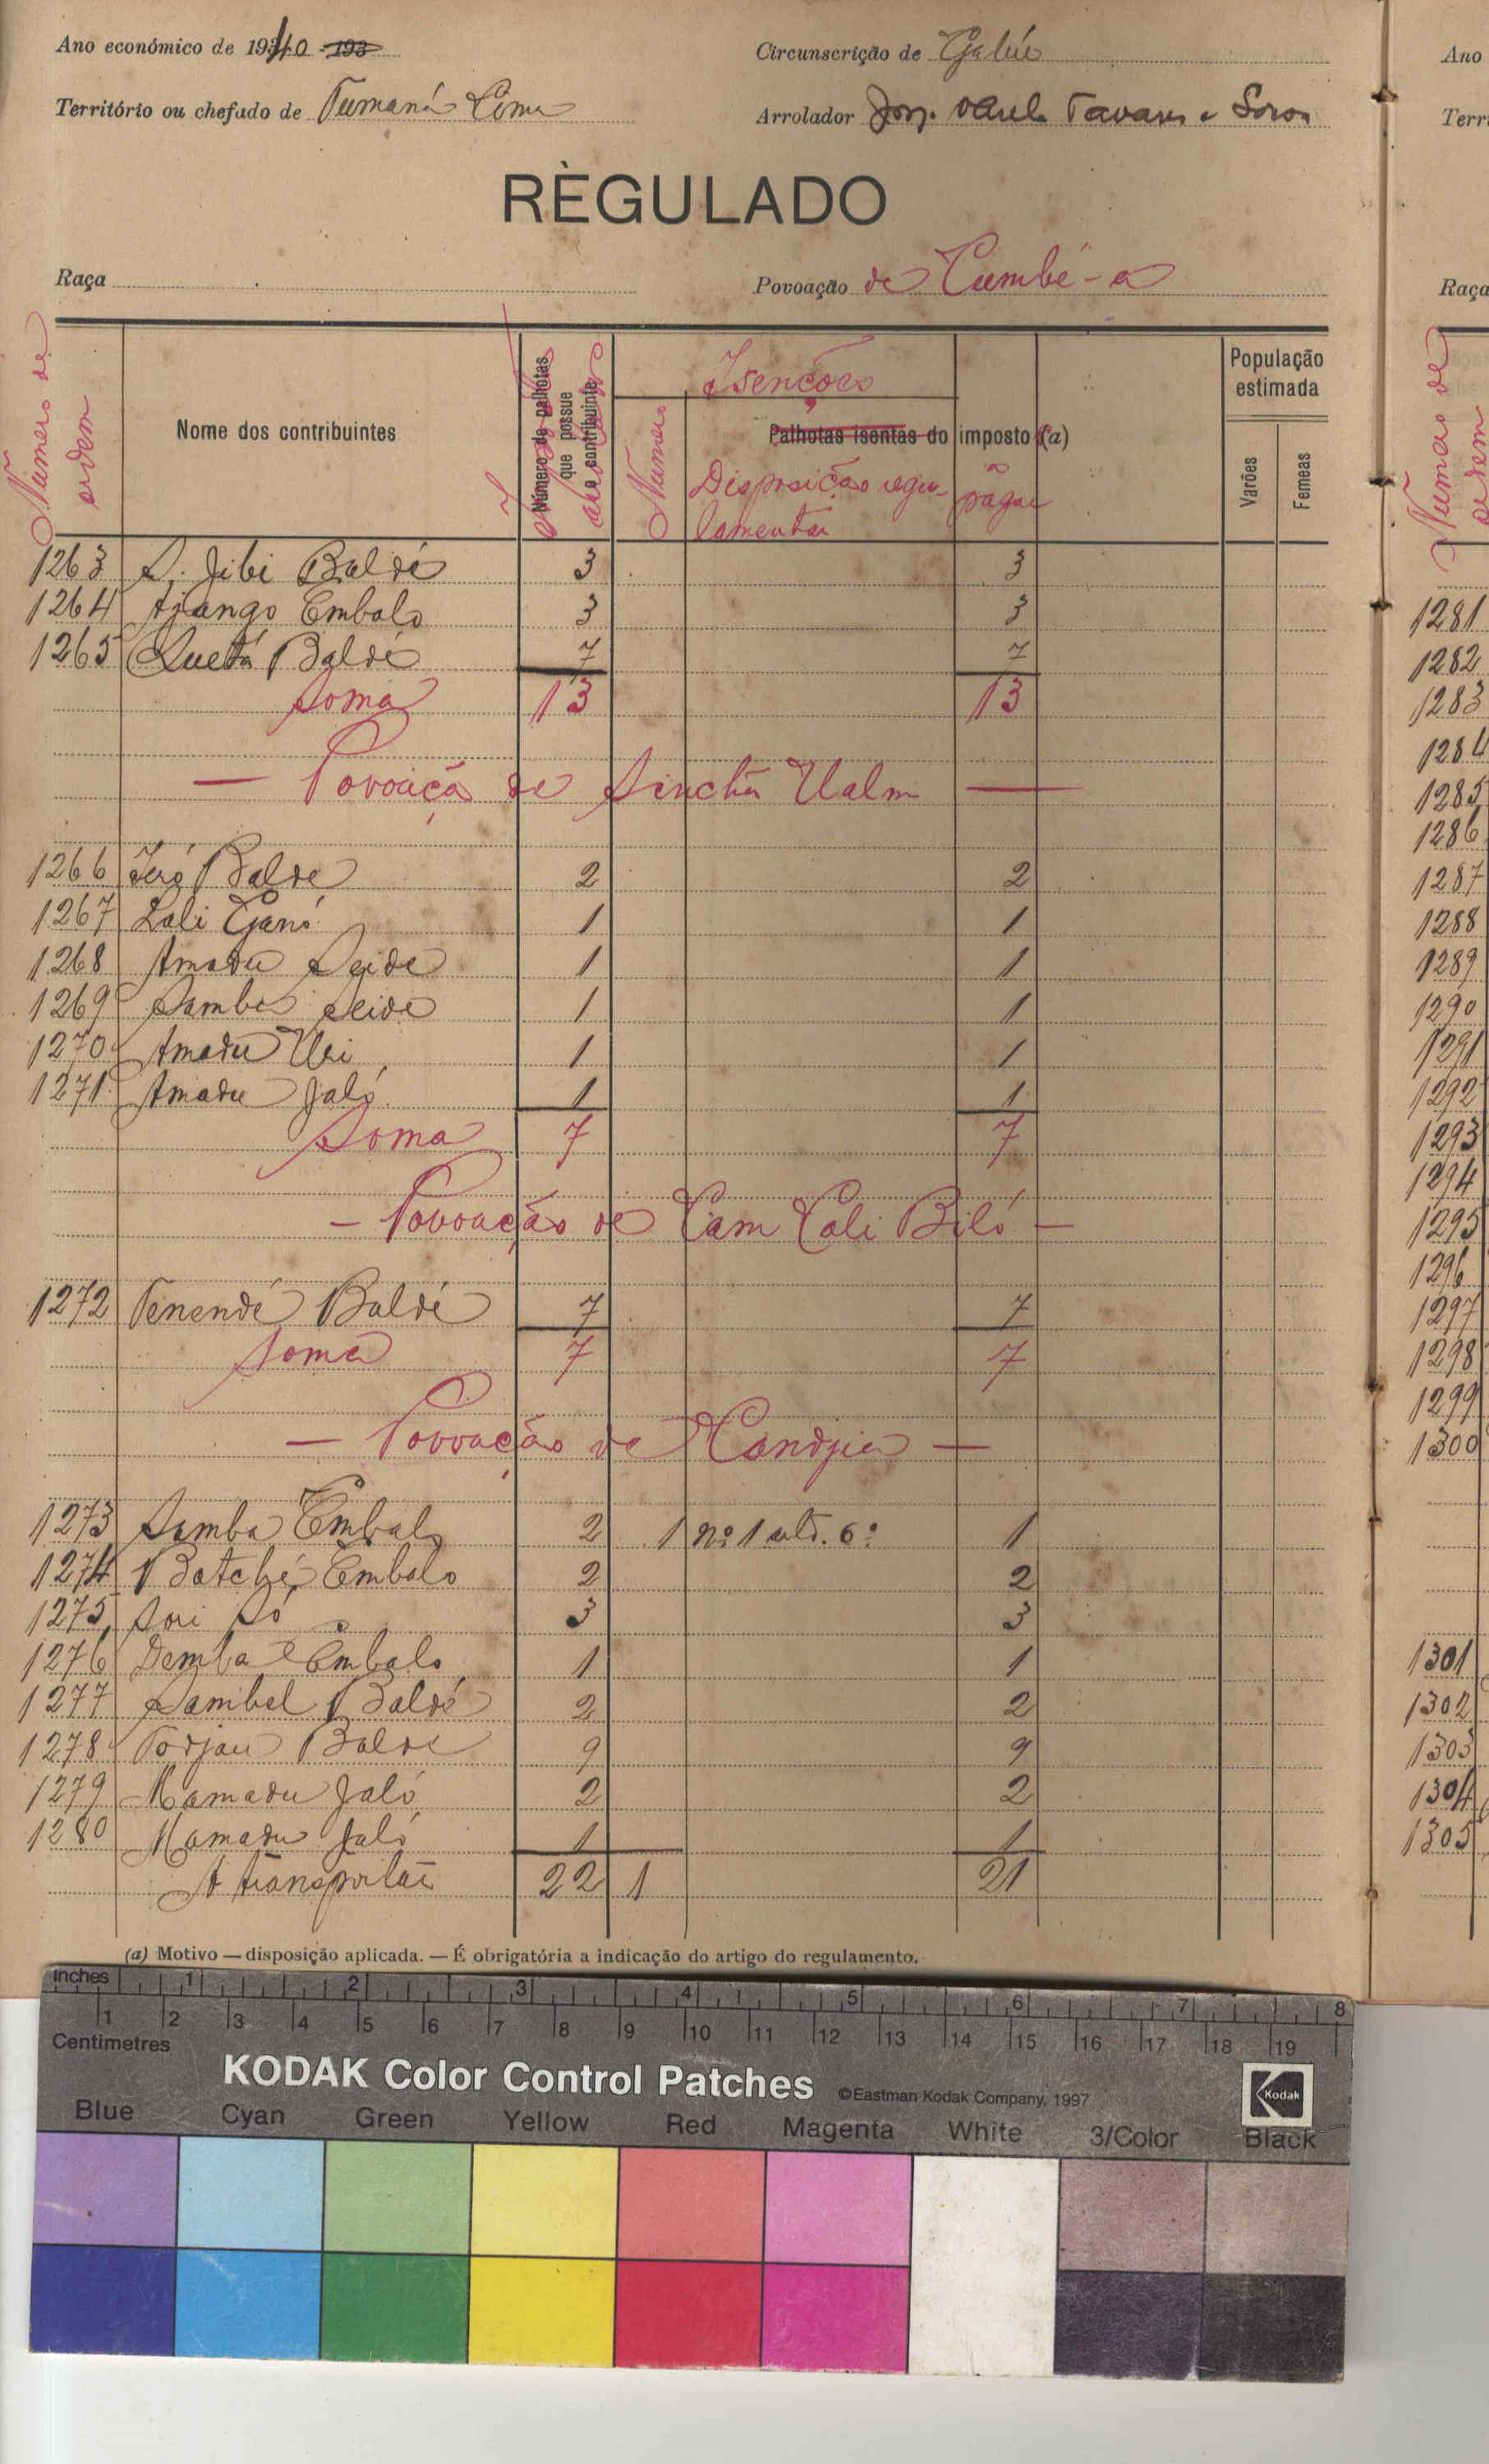 Ano económico de 1940 193
Circunscrição de Gabú
Território ou chefado de Tumaná Cima
Arrolador Tavares e Sousa
RÈGULADO
Raça
Povoação de Cumbé-a
Número de ordem
Nome dos contribuintes
Número de palhotas que possue o contribuinte
Isenções
Número
Palhotas isentas do imposto (a)
Disposição regulamentar
a pagar
População estimada
Varões
Femeas
1263 S. Jibi Baldé 3 3
1264 Ajango Embalo 3 3
1265 Quetá Baldé 7 7
Soma 13 13
— Povoação de Sinchã —
1266 Jeró Balde 2 2
1267 Lali Gano 1 1
1268 Amadu Seide 1 1
1269 Samba Seide 1 1
1270 Amadu Uri 1 1
1271 Amadu Jaló 1 1
Soma 7 7
— Povoação de Cam Cali Biló —
1272 Tenendé Baldé 7 7
Soma 7 7
— Povoação de Candjia —
1273 Samba Embalo 2 1 nº 1 6º 1
1274 Batché Embalo 2 2
1275 Sori Só 3 3
1276 Demba Embalo 1 1
1277 Sambel Baldé 2 2
1278 Todjau Balde 9 9
1279 Mamadu Jaló 2 2
1280 Mamadu Jaló 1 1
A transportar 22 1 21
(a) Motivo — disposição aplicada. — É obrigatória a indicação do artigo do regulamento.
Ano
Raça
Número de ordem
1281
1282
1283
1284
1285
1286
1287
1288
1289
1290
1291
1292
1293
1294
1295
1296
1297
1298
1299
1300
1301
1302
1303
1304
1305
inches 1 2 3 4 5 6 7 8
1 2 3 4 5 6 7 8 9 10 11 12 13 14 15 16 17 18 19
Centimetres
KODAK Color Control Patches ©Eastman Kodak Company, 1997
Kodak
Blue Cyan Green Yellow Red Magenta White 3/Color Black